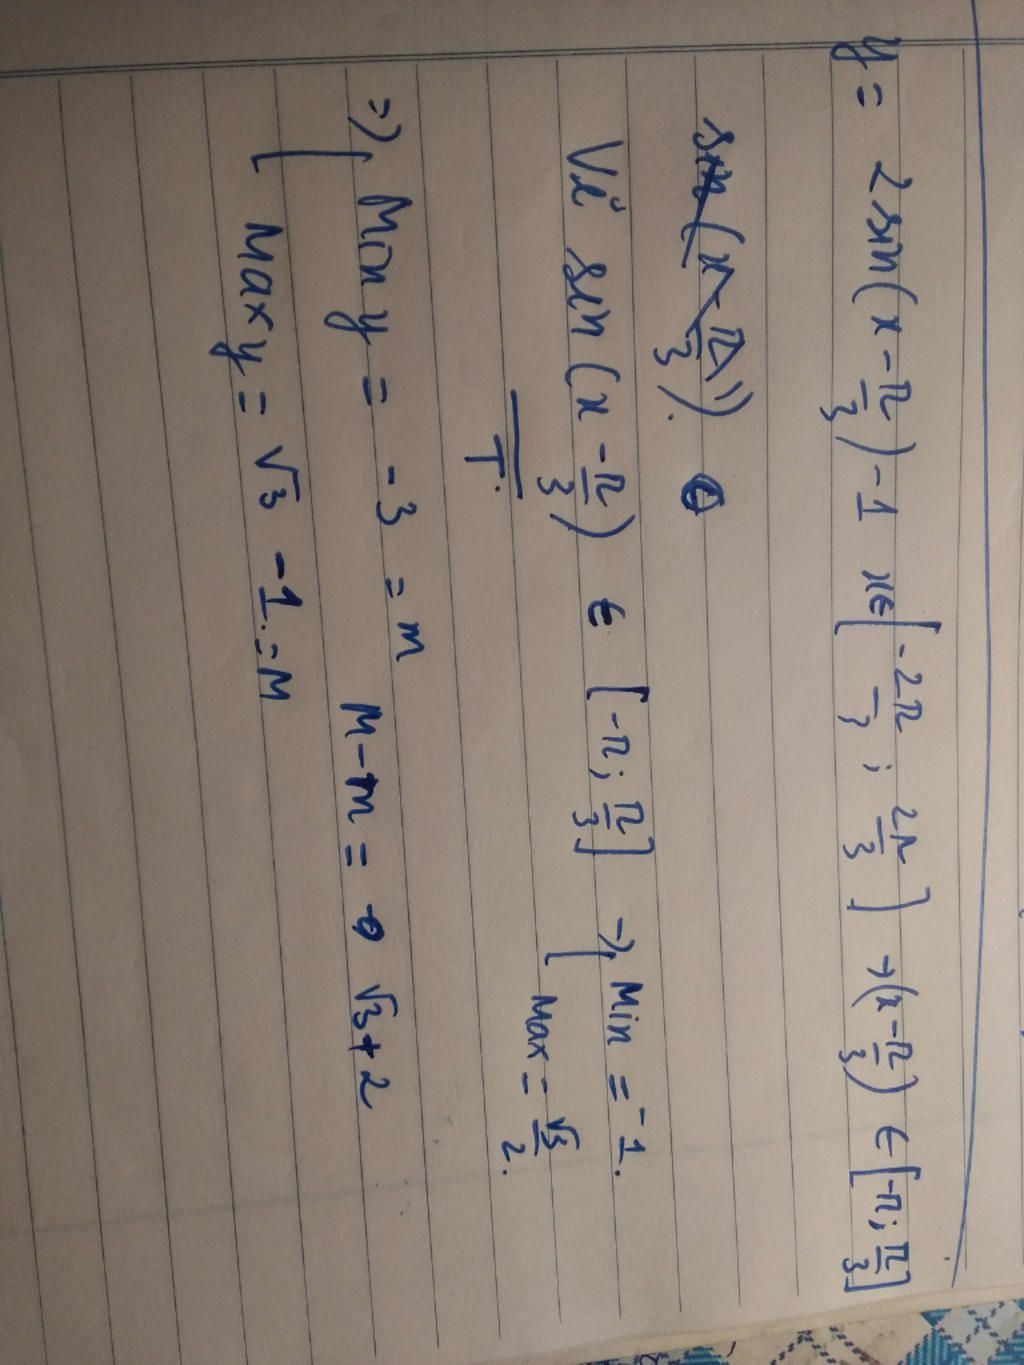 y = 2 sin(x - π/3) - 1 x∈[-2π/3 ; 2π/3] → (x - π/3) ∈ [-π; π/3]
sin(x - π/3). ∈
Vì sin(x - π/3) ∈ [-π; π/3] → Min = -1.
T. Max = √3/2.
=> Min y = -3 = m
M - m = √3 + 2
Max y = √3 - 1. = M